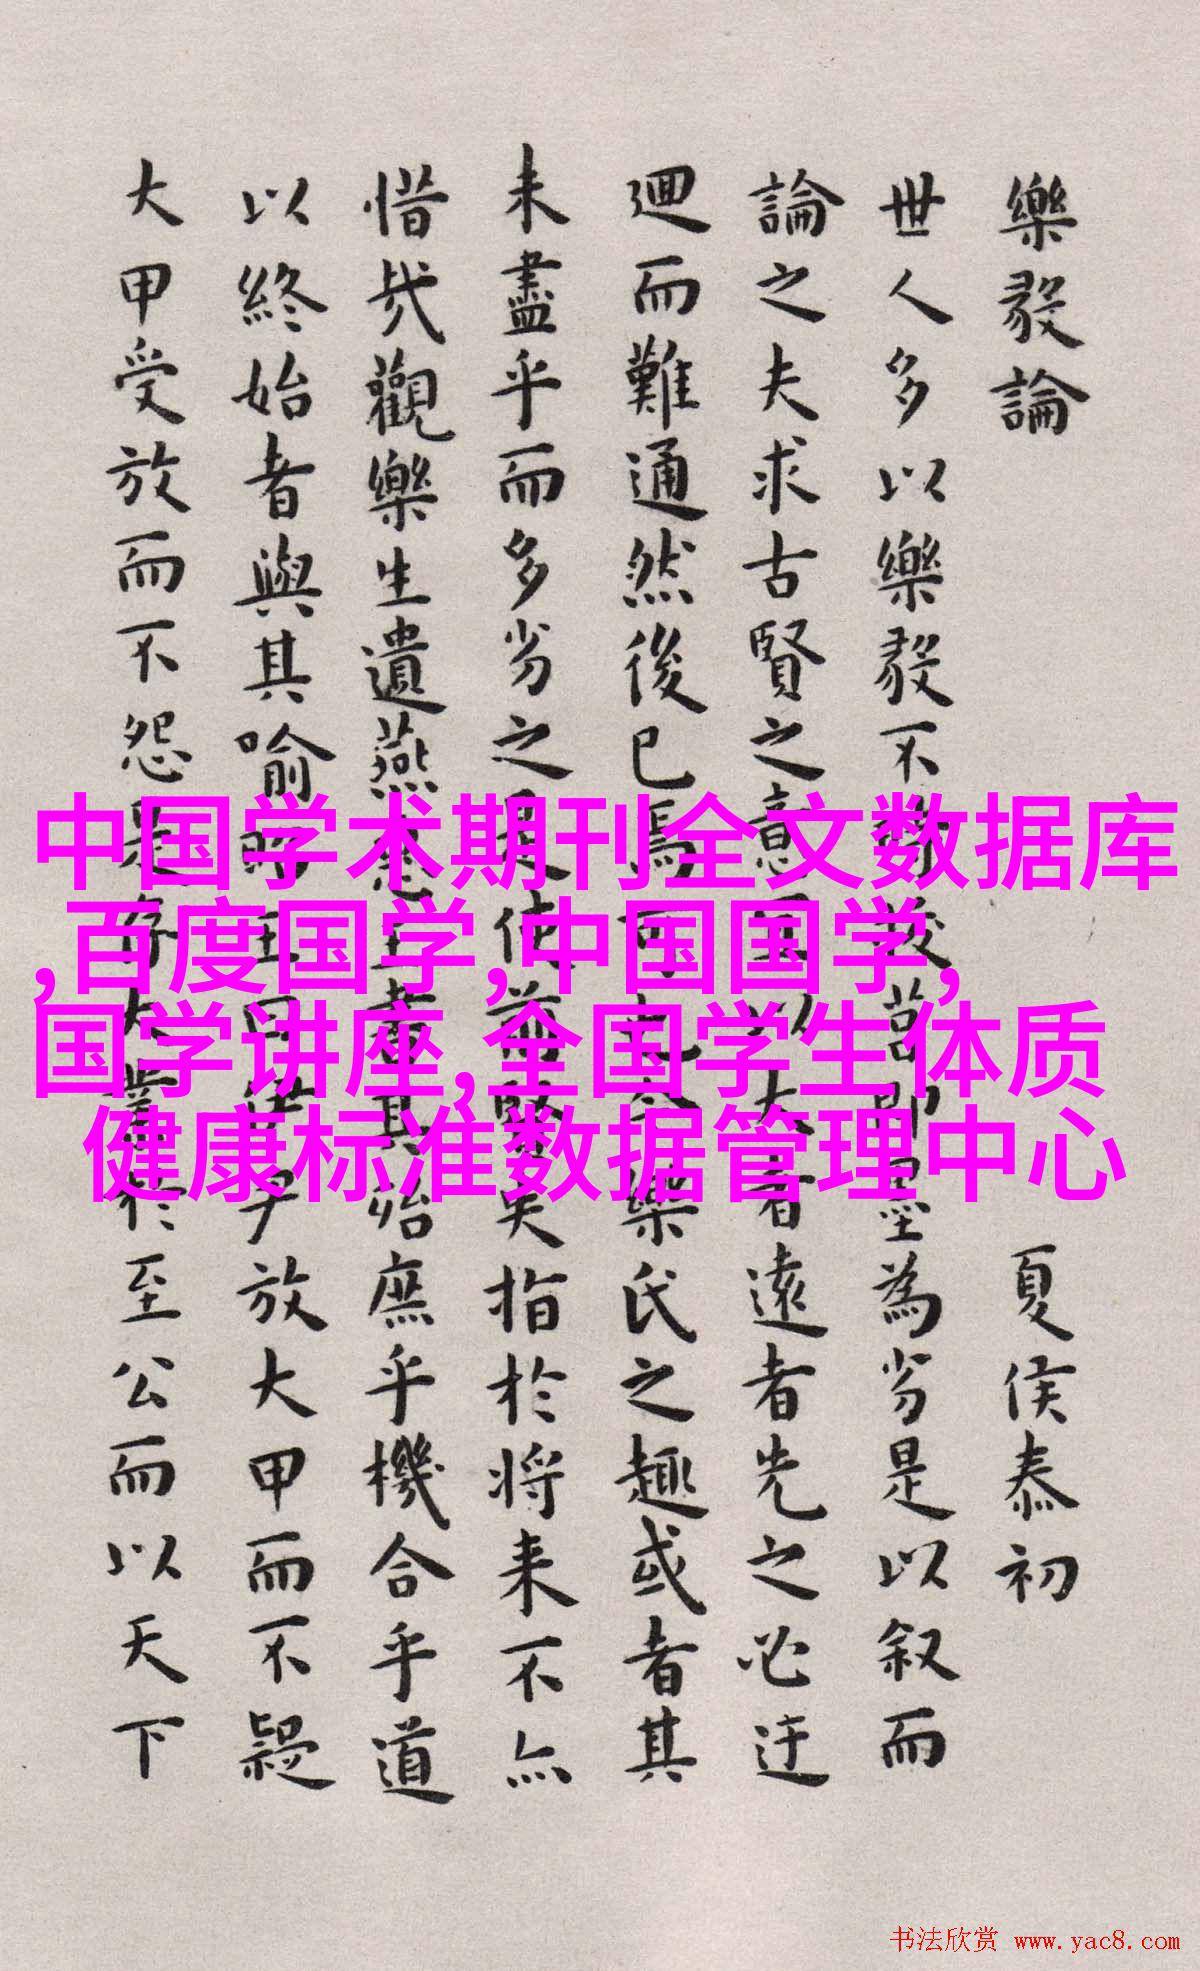 樂毅論 夏侯泰初
世人多以樂毅不 莒即墨為劣是以叙而
論之夫求古賢之意 以大者遠者先之必迂
迴而難通然後已焉可 樂氏之趣或者其
未盡乎而多劣之是使前賢失指於将来不亦
惜哉觀樂生遺燕 其殆庶乎機合乎道
以終始者與其喻昭王曰伊尹放大甲而不疑
大甲受放而不怨是存大業於至公而以天下
中国学术期刊全文数据库
,百度国学,中国国学,
国学讲座,全国学生体质
健康标准数据管理中心
书法欣赏 www.yac8.com